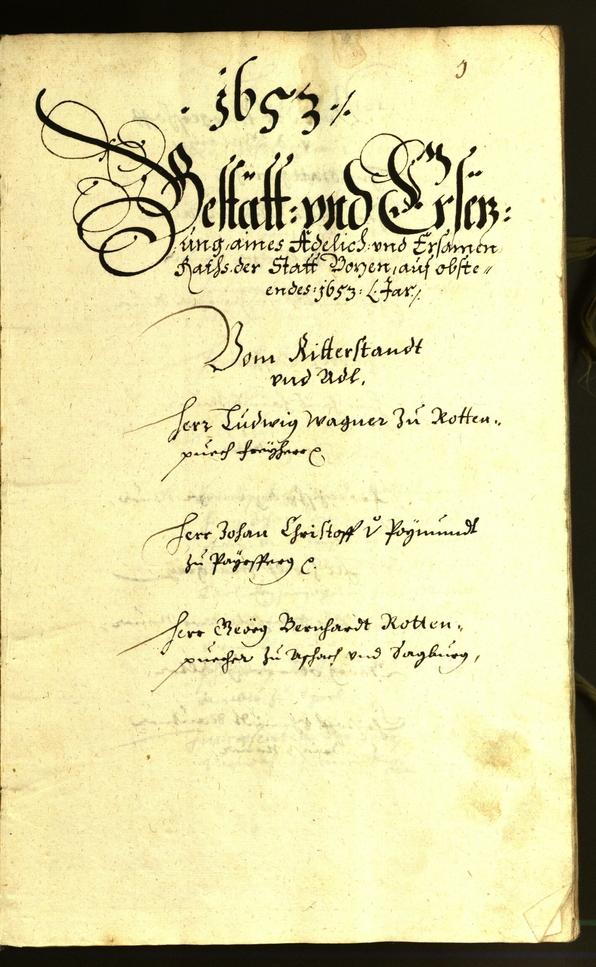 1
· 1653 ·/.
Bestätt: vnd Ersez:
ung aines Adelich: vnd Ersamen
Raths der Statt Bozen, auf obste„
endes: 1653: L. Jar/.
Vom Ritterstandt
vnd Adl.
Herr Ludwig Wagner zu Rotten„
puech freyherr
Herr Johan Christoff v Poymundt
zu Payrsperg
Herr Geörg Bernhardt Rotten„
puecher zu Aschach vnd Sagburg,